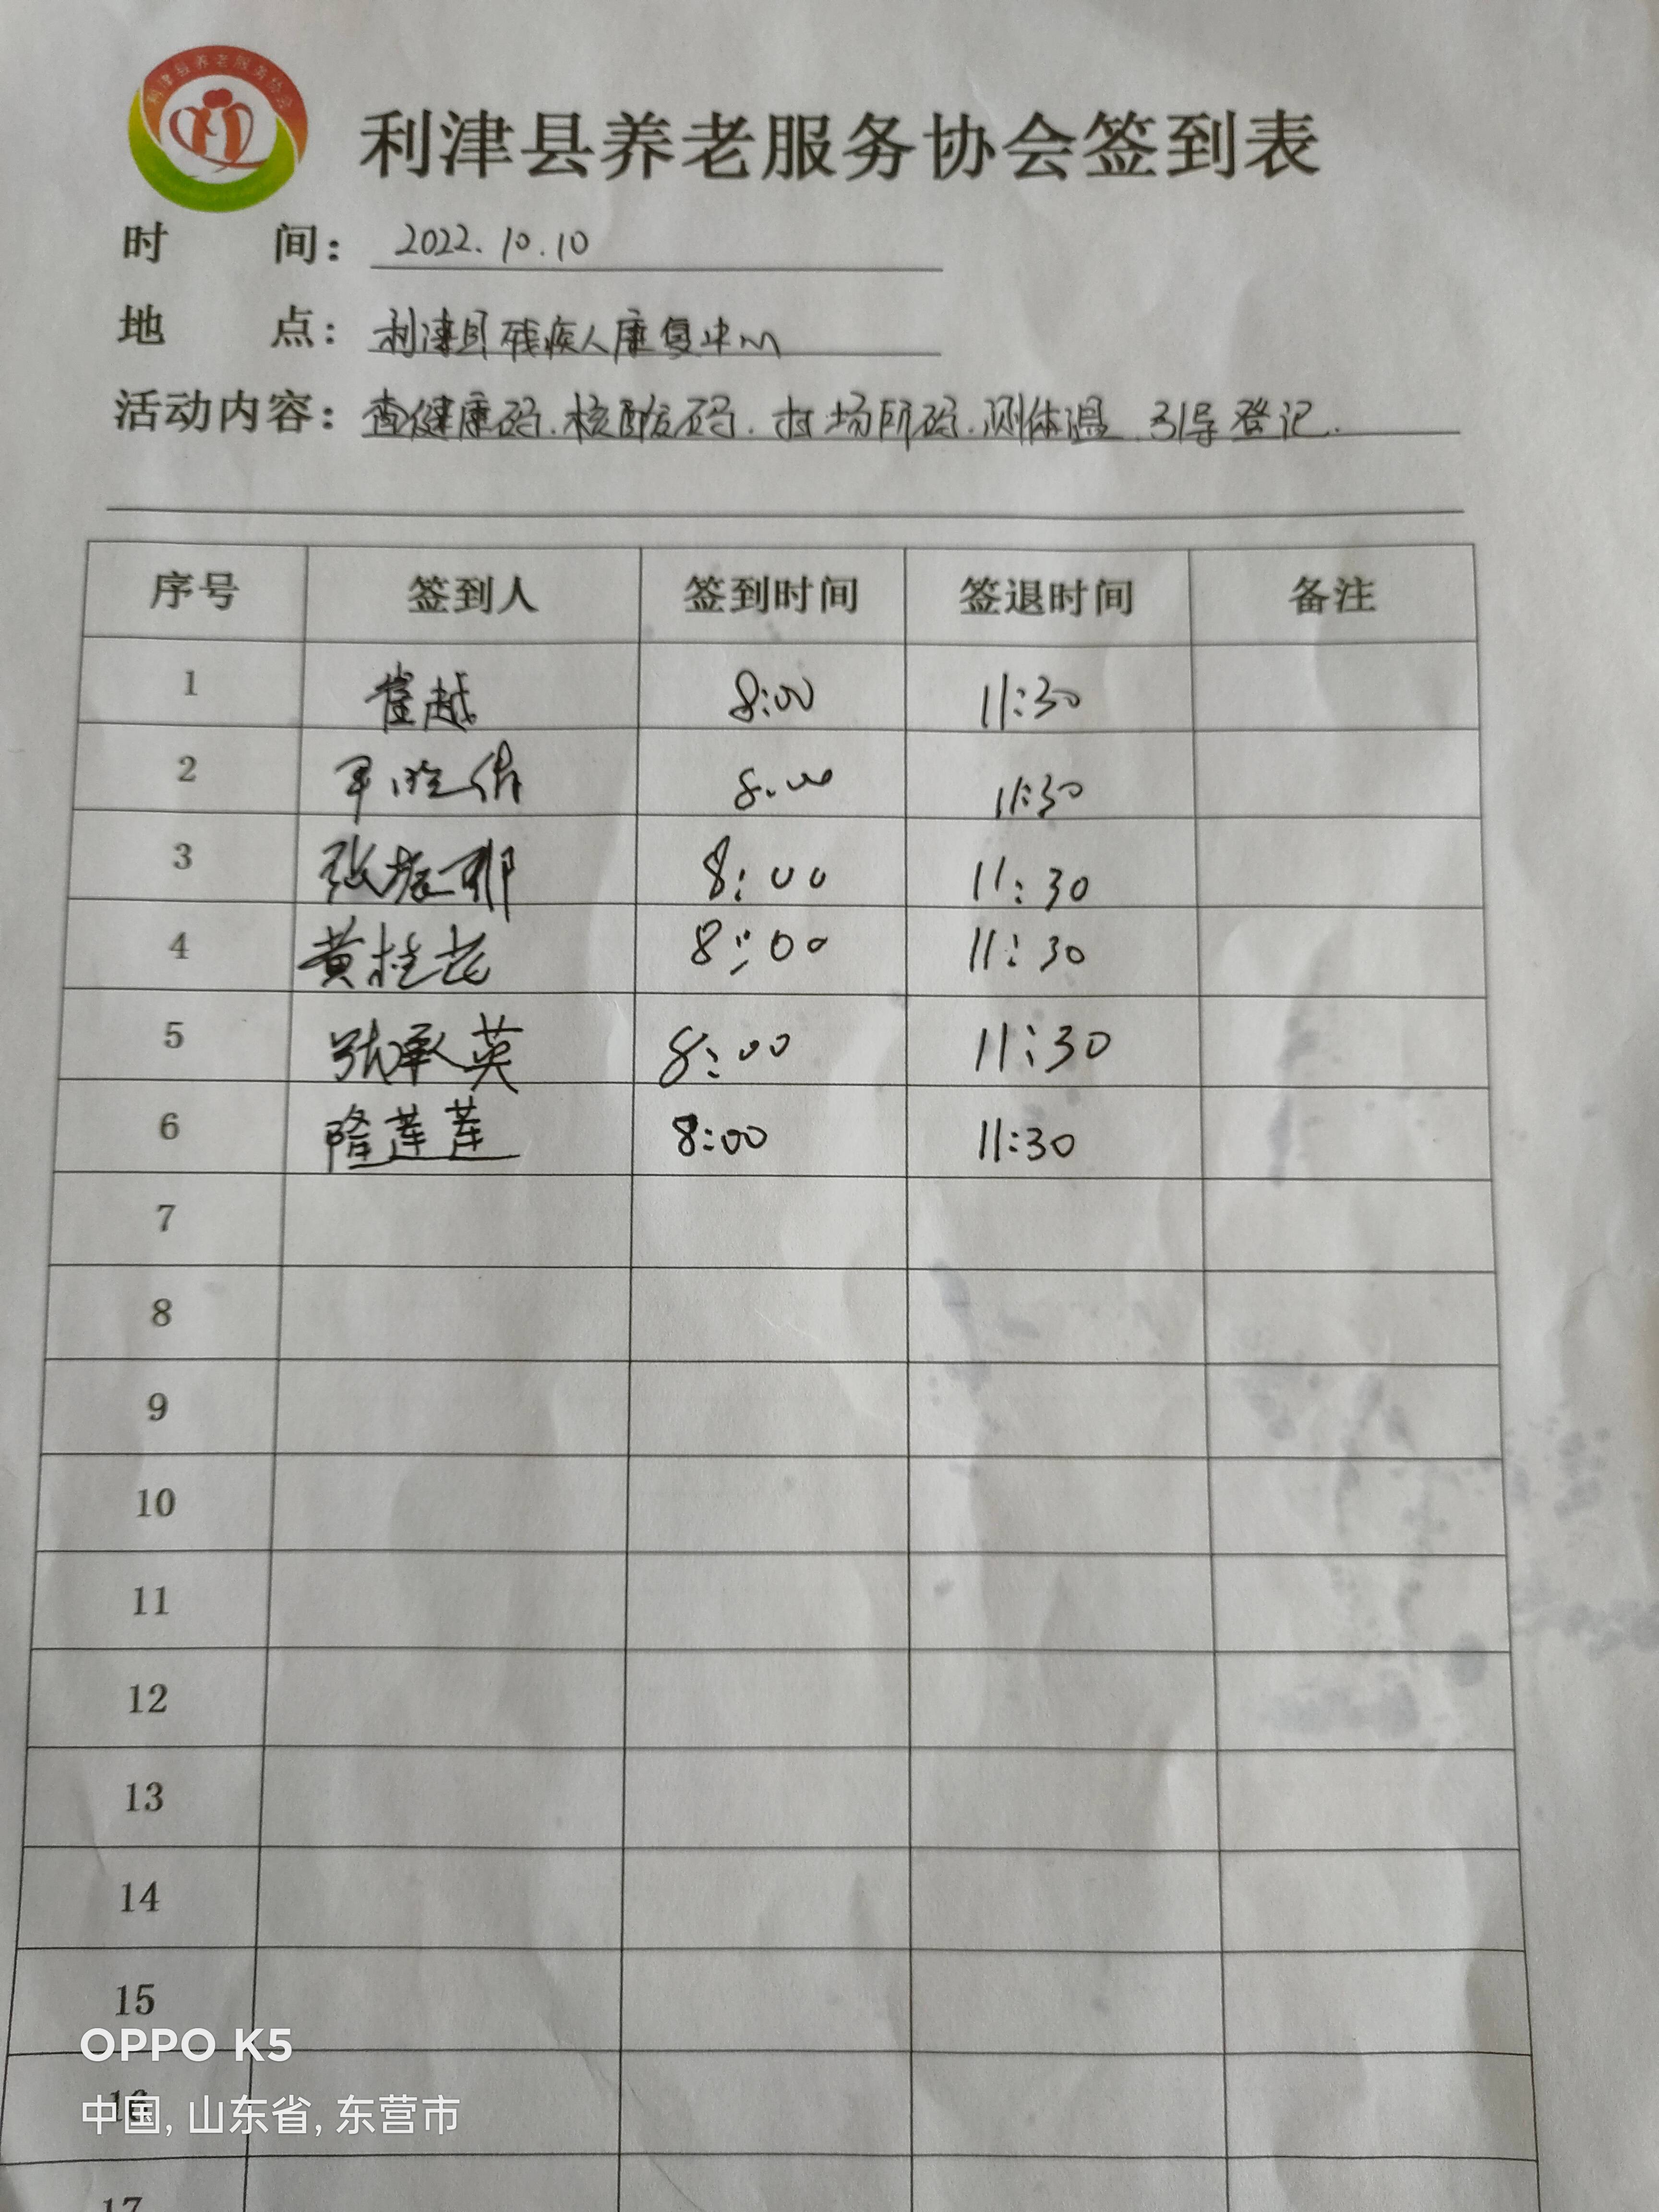 利津县养老服务协会
利津县养老服务协会签到表
时 间: 2022.10.10
地 点: 利津县残疾人康复中心
活动内容: 查健康码.核酸码.扫场所码.测体温.引导登记.
序号 签到人 签到时间 签退时间 备注
1 崔越 8:00 11:30
2 8:00 11:30
3 张振 8:00 11:30
4 黄桂花 8:00 11:30
5 张承英 8:00 11:30
6 隆莲莲 8:00 11:30
7
8
9
10
11
12
13
14
15
OPPO K5
16
中国, 山东省, 东营市
17